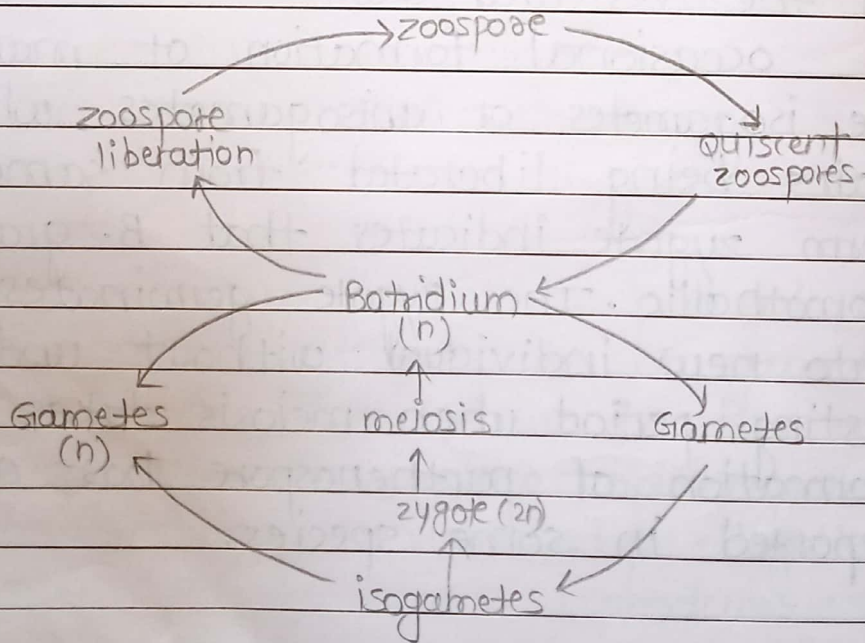 zoospore
zoospore
liberation
Quiscent
zoospores
Botridium
(n)
Gametes
(n)
meiosis
Gametes
zygote (2n)
isogametes